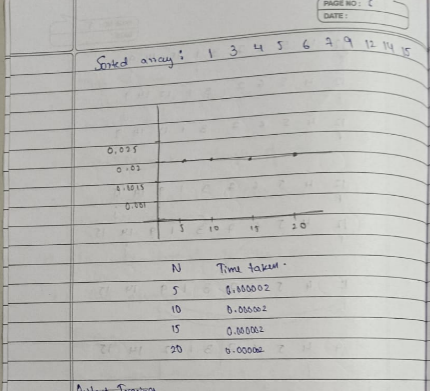 PAGE NO:
DATE:
Sorted array: 1 3 4 5 6 7 9 12 14 15
0.025
0.02
0.0015
0.001
5 10 15 20
N Time taken -
5 0.000002
10 0.000002
15 0.000002
20 0.000002